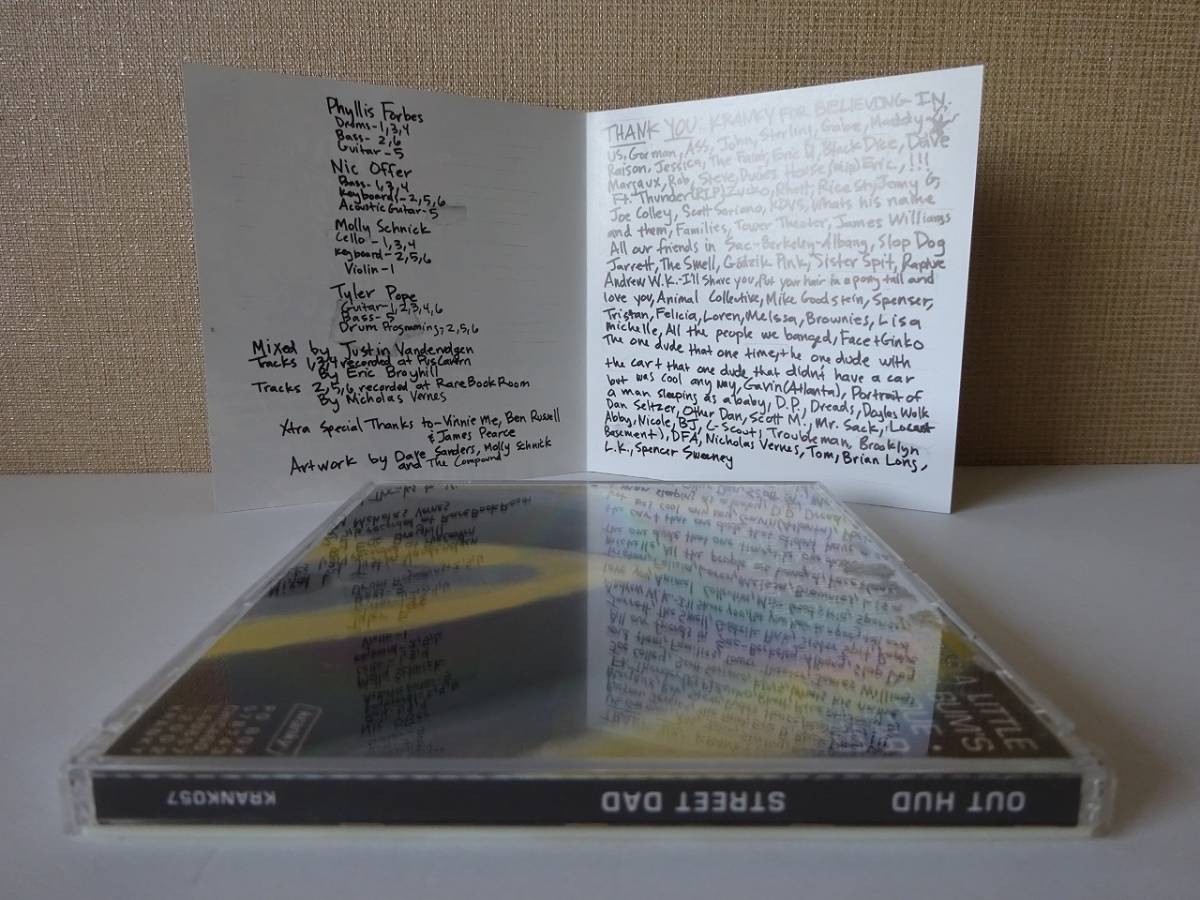 Phyllis Forbes
Drums-1,3,4
Bass-2,6
Guitar-5
Nic Offer
Bass-1,3,4
Keyboards-2,5,6
Acoustic Guitar-5
Molly Schnick
Cello-1,3,4
Keyboard-2,5,6
Violin-1
Tyler Pope
Guitar-1,2,3,4,6
Bass-5
Drum Programming-2,5,6
Mixed by Justin Vandervolgen
Tracks 1,3,4 recorded at Pus Cavern
By Eric Broyhill
Tracks 2,5,6 recorded at Rare Book Room
By Nicholas Vernes
Xtra Special Thanks to-Vinnie Me, Ben Russell
& James Pearce
Artwork by Dave Sanders, Molly Schnick
and The Compound
THANK YOU: KRANKY FOR BELIEVING IN
US, Gorman, Ass, John, Sterling, Gabe, Maddy
Raison, Jessica, The Faint, Eric, Black Dice, Dave
Margaux, Rob, Steve, Dudes House (RIP) Eric, !!!
Ft. Thunder (RIP) Zucko, Rice
Joe Colley, Scott Soriano, KDVS, Whats his name
and them, Families, Tower Theater, James Williams
All our friends in Sac-Berkeley-Albany, Slop Dog
Jarrett, The Smell, Godzik Pink, Sister Spit, Rapture
Andrew W.K.-I'll Shave you, Put your hair in a pony tail and
love you, Animal Collective, Mike Goodstein, Spenser,
Tristan, Felicia, Loren, Melissa, Brownies, Lisa
Michelle, All the people we banged, Face + Ginko
The one dude that one time, the one dude with
the car + that one dude that didn't have a car
but was cool any way, Gavin (Atlanta), Portrait of
a man sleeping as a baby, D.P., Dreads, Douglas Wolk
Dan Seltzer, Other Dan, Scott M., Mr. Sack, Locust
Abby, Nicole, BJ, C-Scout, Troubleman, Brooklyn
Basement), DFA, Nicholas Vernes, Tom, Brian Long,
L.K., Spencer Sweeney
A LITTLE
BUM'S
kranky
OUT HUD STREET DAD KRANK057